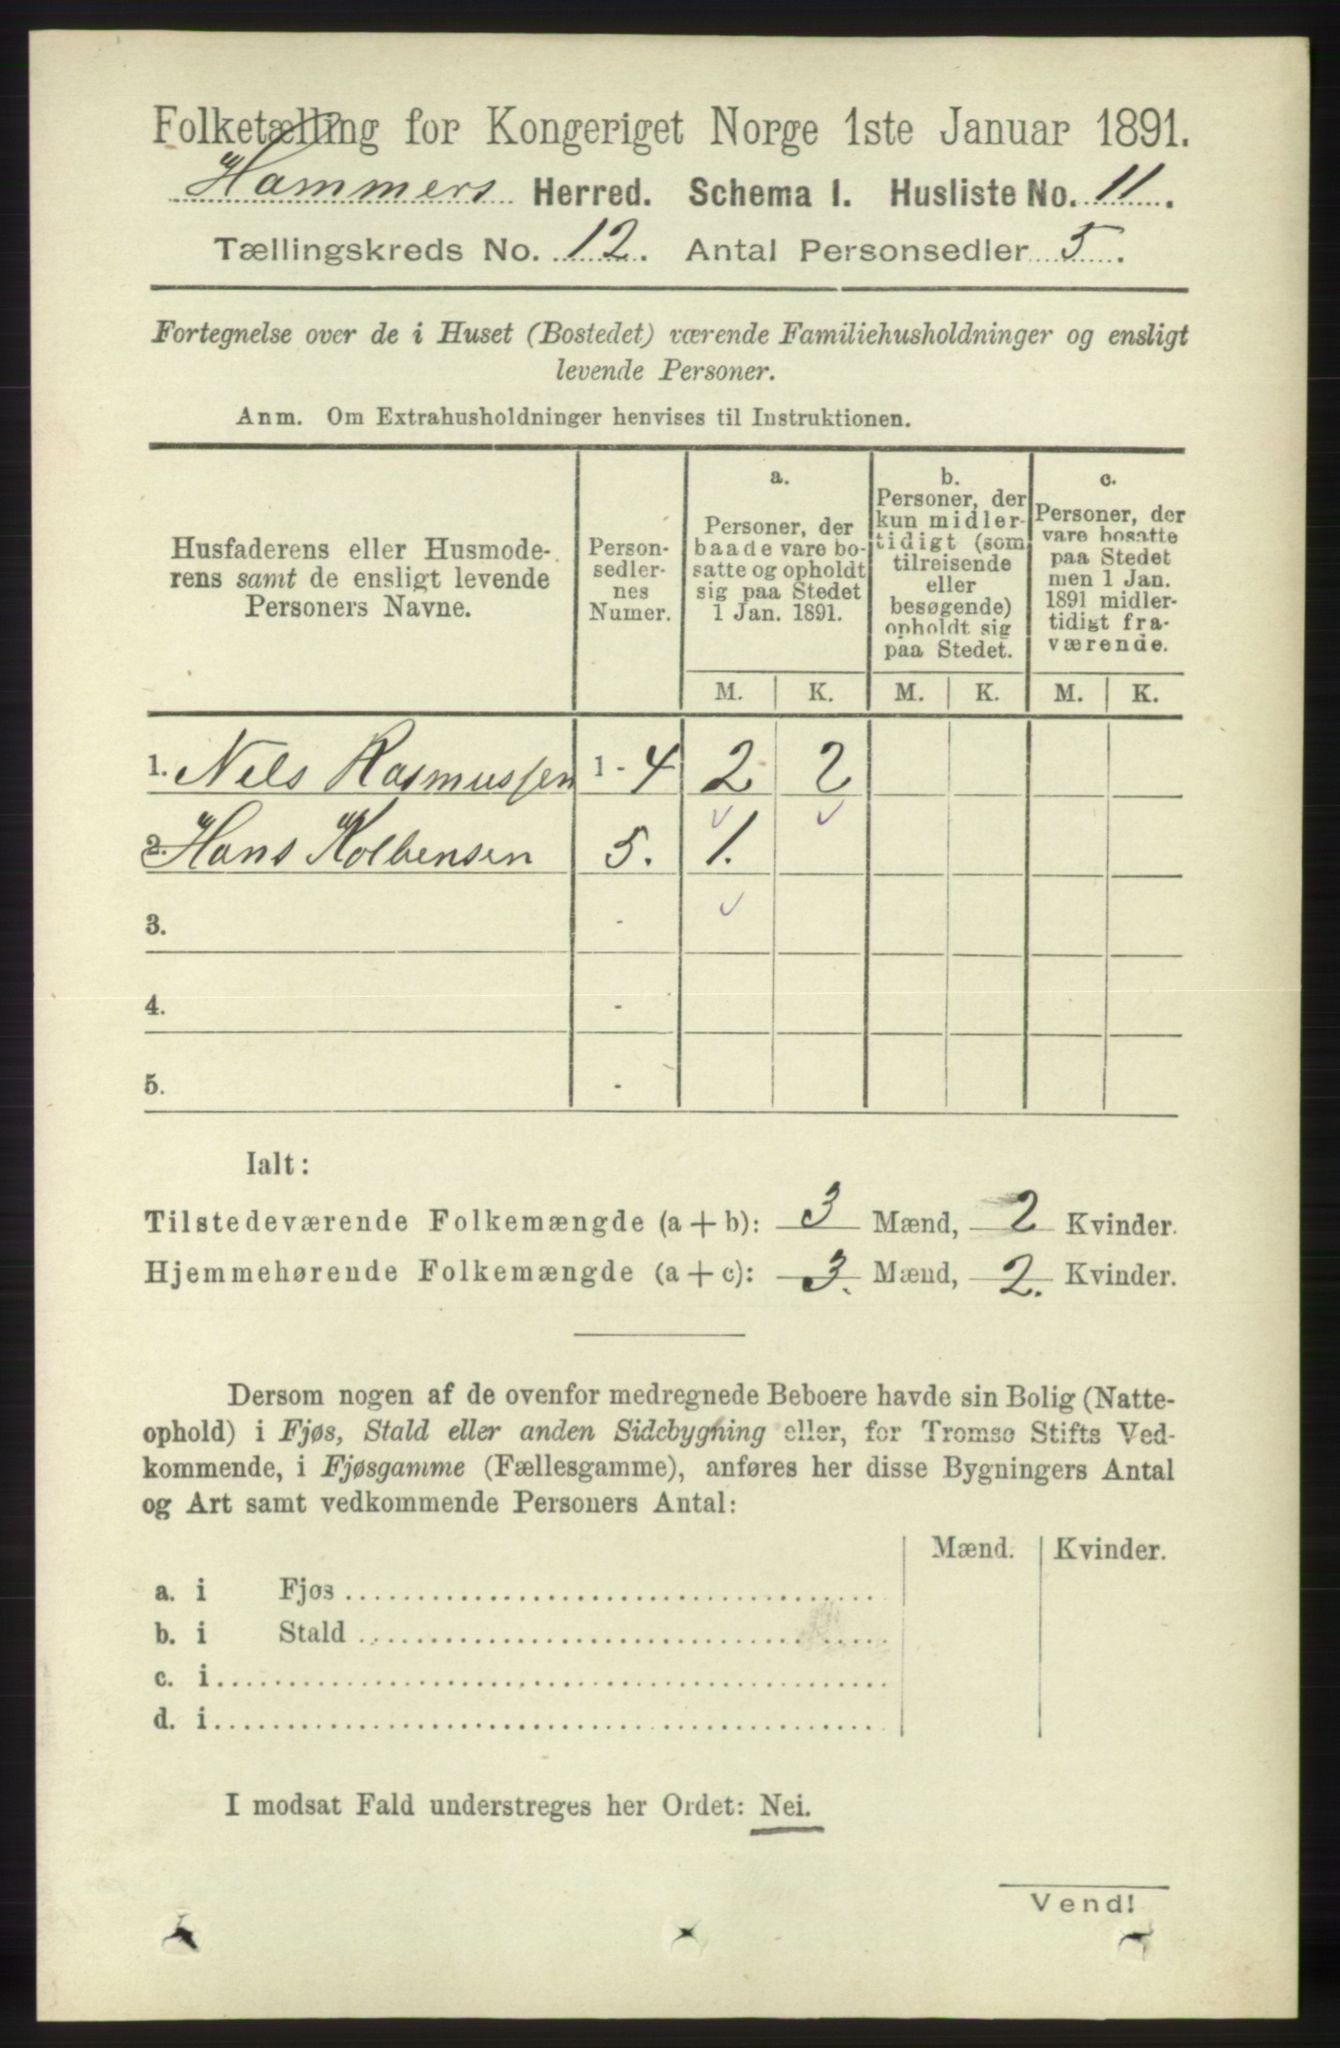 Folketælling for Kongeriget Norge 1ste Januar 1891.
Hammers Herred. Schema I. Husliste No. 11.
Tællingskreds No. 12. Antal Personsedler 5.
Fortegnelse over de i Huset (Bostedet) værende Familiehusholdninger og ensligt
levende Personer.
Anm. Om Extrahusholdninger henvises til Instruktionen.
Husfaderens eller Husmode-
rens samt de ensligt levende
Personers Navne.
Person-
sedler-
nes
Numer.
a.
Personer, der
baade vare bo-
satte og opholdt
sig paa Stedet
1 Jan. 1891.
b.
Personer, der
kun midler-
tidigt (som
tilreisende
eller
besøgende)
opholdt sig
paa Stedet.
c.
Personer, der
vare bosatte
paa Stedet
men 1 Jan.
1891 midler-
tidigt fra-
værende.
M. K. M. K. M. K.
1. Nels Rasmussen 1 - 4 2 2
2. Hans Kolbensen 5. 1.
3. -
4. -
5. -
Ialt:
Tilstedeværende Folkemængde (a + b): 3 Mænd, 2 Kvinder.
Hjemmehørende Folkemængde (a + c): 3. Mænd, 2. Kvinder.
Dersom nogen af de ovenfor medregnede Beboere havde sin Bolig (Natte-
ophold) i Fjøs, Stald eller anden Sidebygning eller, for Tromsø Stifts Ved-
kommende, i Fjøsgamme (Fællesgamme), anføres her disse Bygningers Antal
og Art samt vedkommende Personers Antal:
Mænd. Kvinder.
a. i Fjøs
b. i Stald
c. i
d. i
I modsat Fald understreges her Ordet: Nei.
Vend!